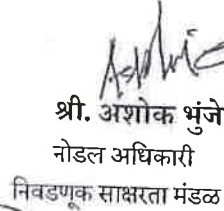 श्री. अशोक भुंजे
नोडल अधिकारी
निवडणूक साक्षरता मंडळ